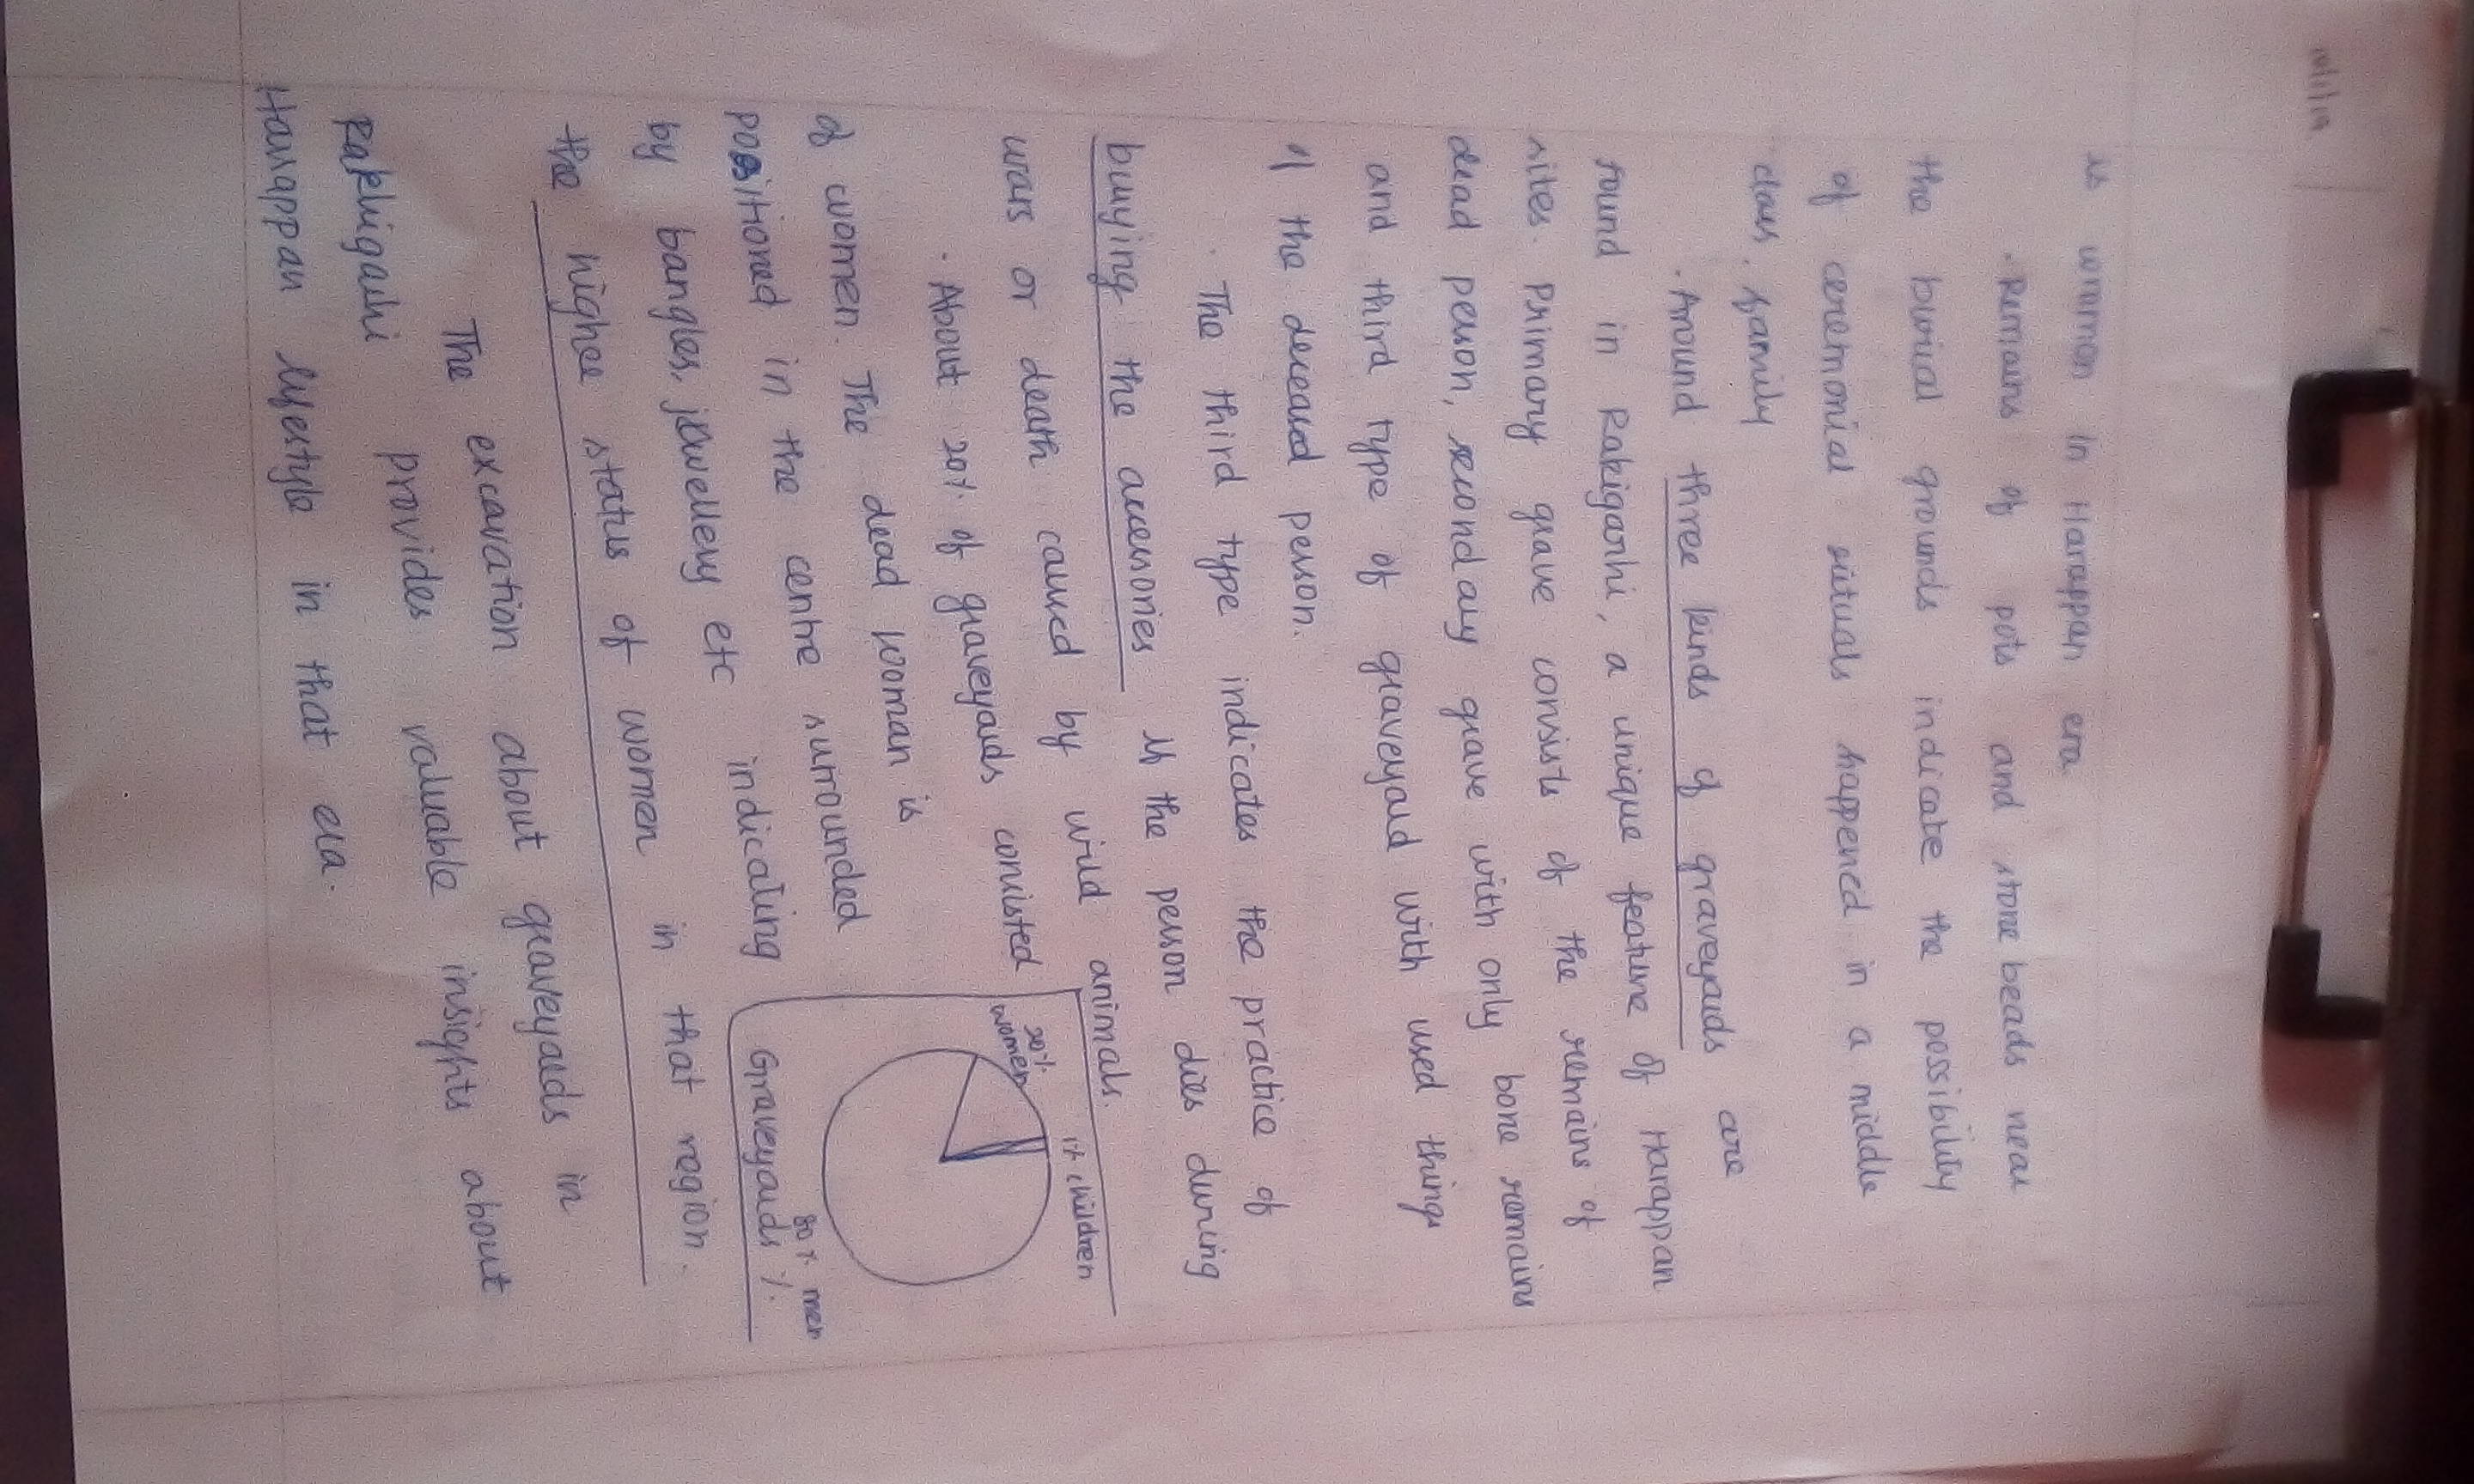 is common in Harappan era
. Remains of pots and stone beads near
the burial grounds indicate the possibility
of ceremonial rituals happened in a middle
class family
. Around three kinds of graveyards are
found in Rakigarhi, a unique feature of Harappan
sites. Primary grave consists of the remains of
dead person, secondary grave with only bone remains
and third type of graveyard with used things
of the deceased person.
. The third type indicates the practice of
buying the accessories If the person dies during
wars or death caused by wild animals.
. About 20% of graveyards consisted
of women. The dead woman is
positioned in the centre surrounded
by bangles, jewellery etc indicating
the higher status of women in that region.
1% children
20%
women
80% men
Graveyards %.
The excavation about graveyards in
Rakhigarhi provides valuable insights about
Harappan lifestyle in that era.